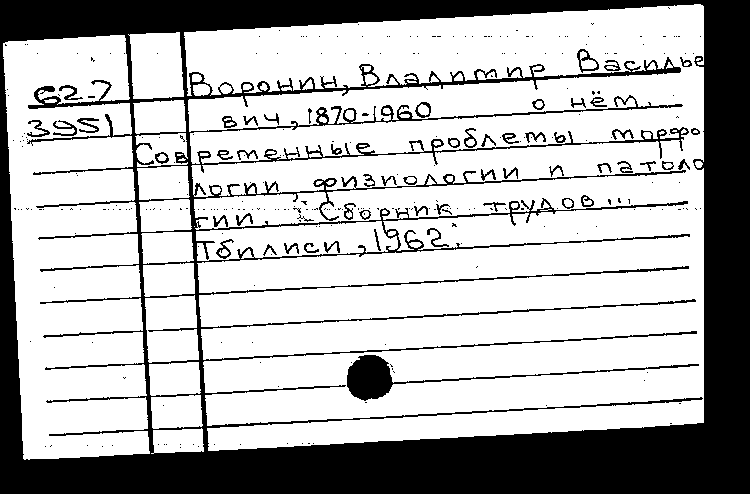 62-7 Воронин, Владимир Василье
3951 вич, 1870-1960 о нём.
Современные проблемы морфо
логии, физиологии и патоло
гии. Сборник трудов...
Тбилиси, 1962.